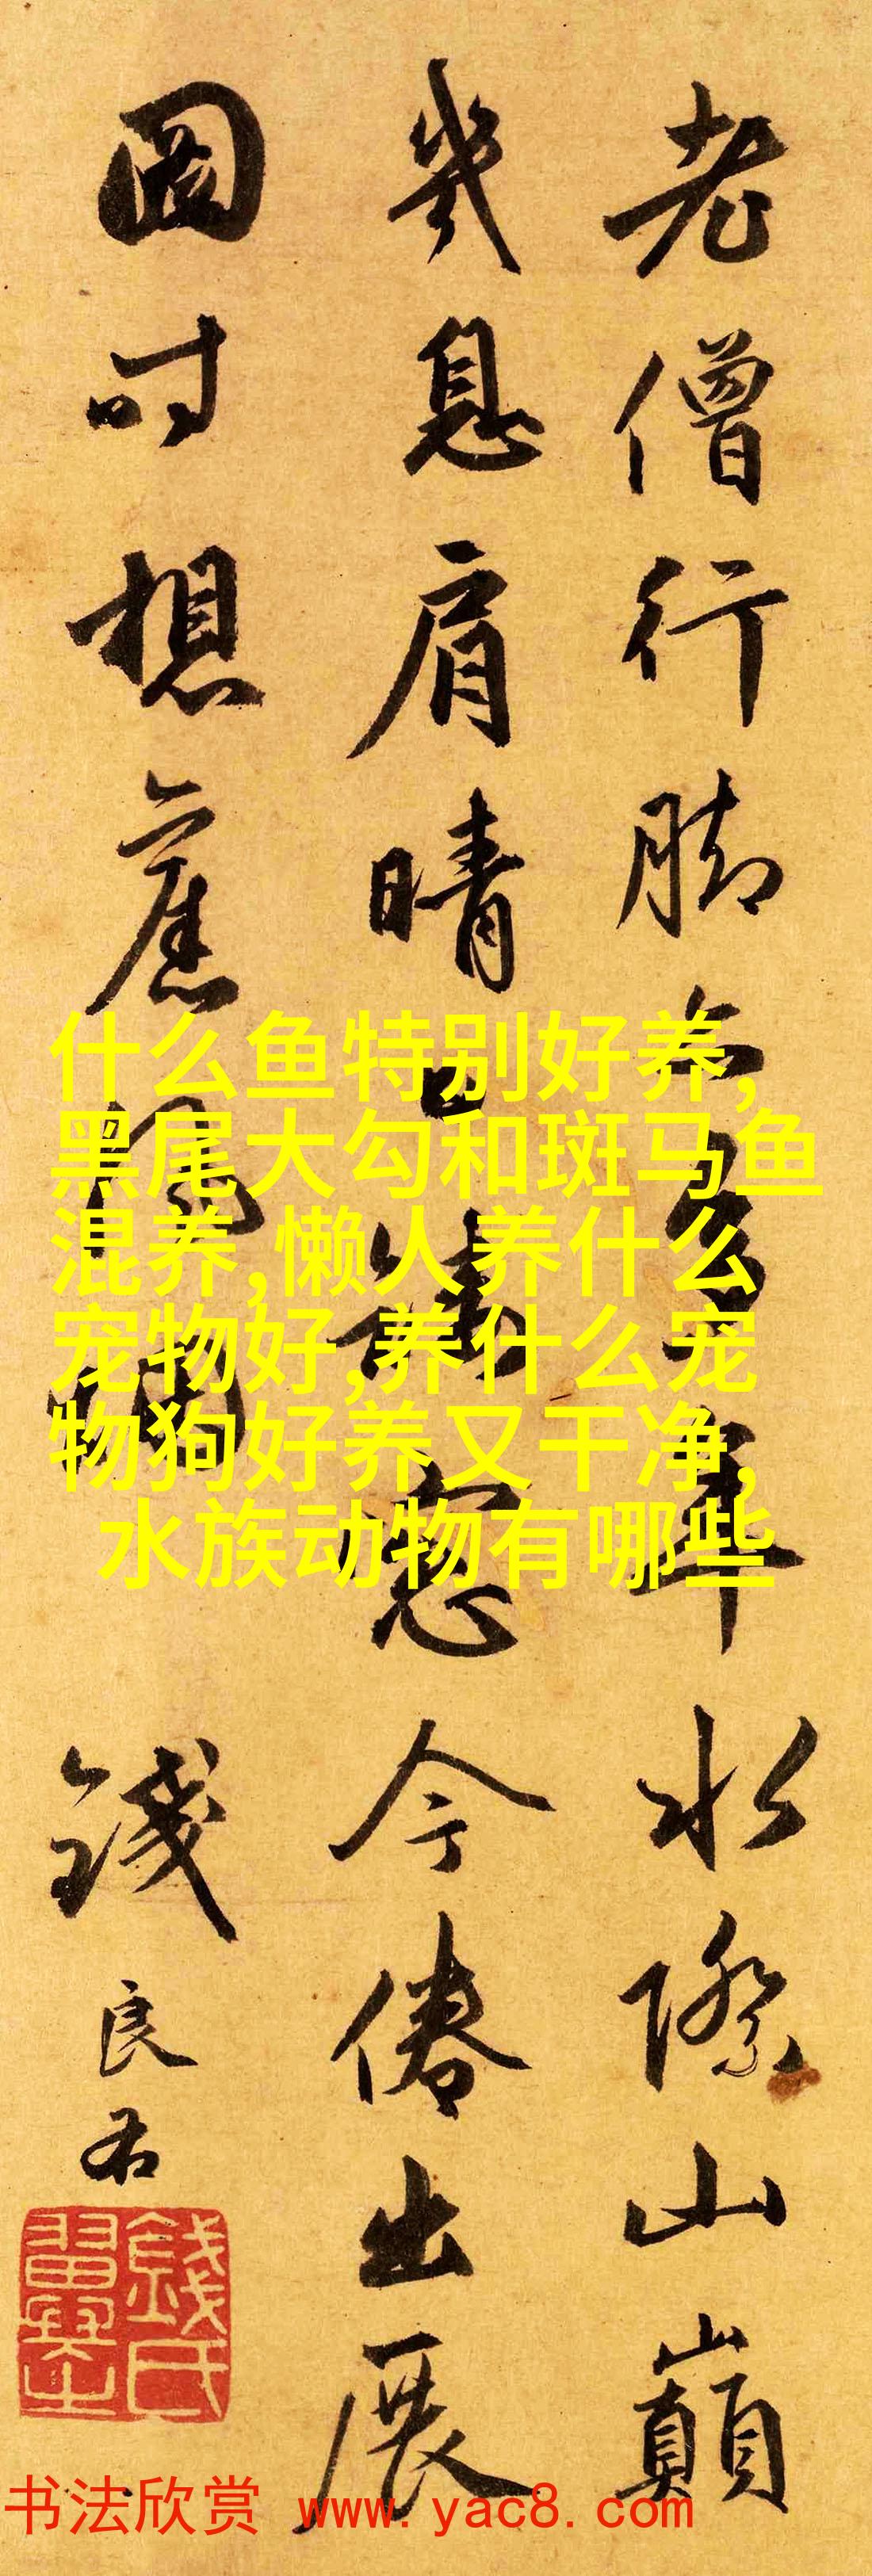 老僧行脚無多年水際山巔
幾息肩晴日讀窓今倦出展
圖時想蕉風烟
錢良右
錢氏翼之
什么鱼特别好养,
黑尾大勾和斑马鱼
混养,懒人养什么
宠物好,养什么宠
物狗好养又干净,
水族动物有哪些
书法欣赏 www.yac8.com